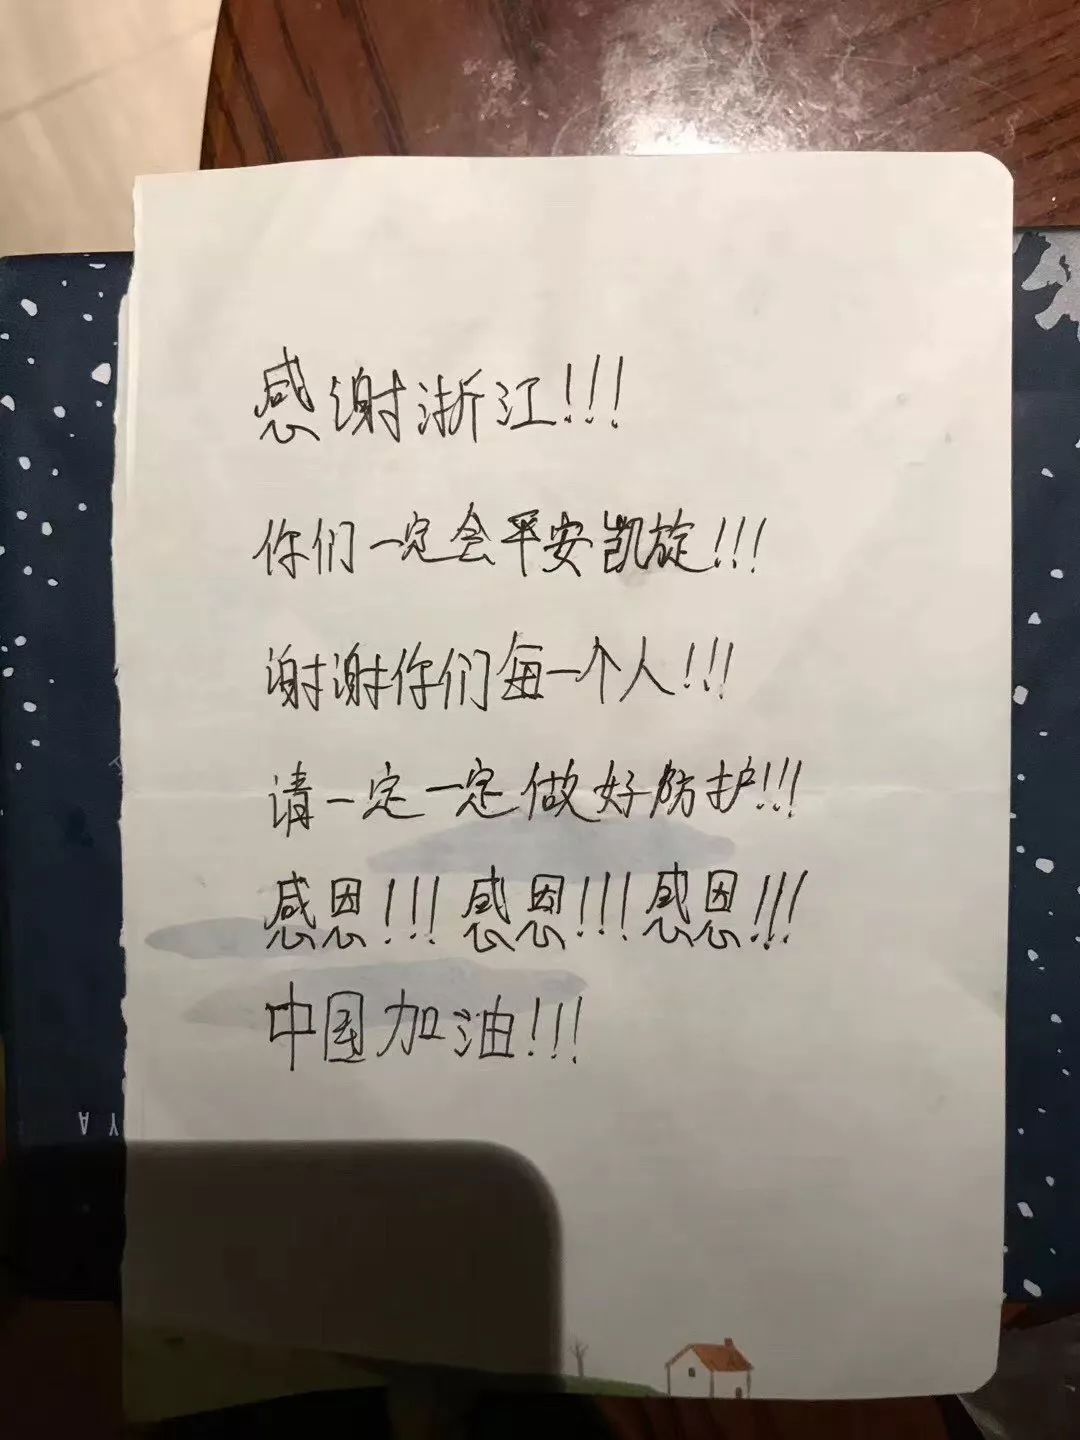 感谢浙江!!!
你们一定会平安凯旋!!!
谢谢你们每一个人!!!
请一定一定做好防护!!!
感恩!!!感恩!!!感恩!!!
中国加油!!!